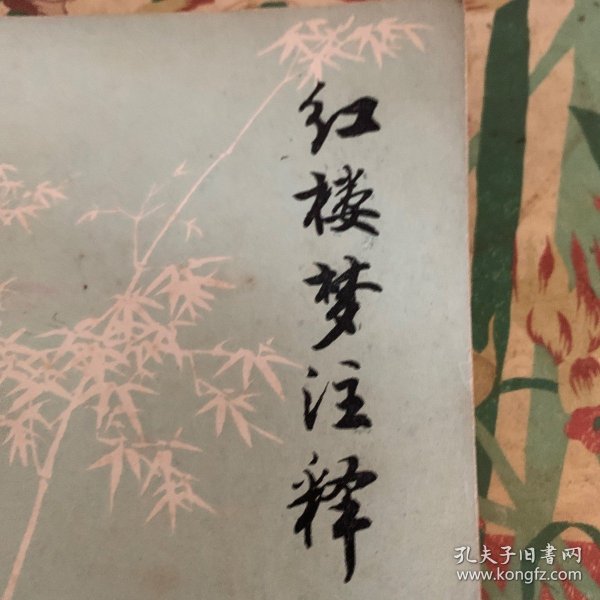 红楼梦注释
孔夫子旧书网
www.kongfz.com